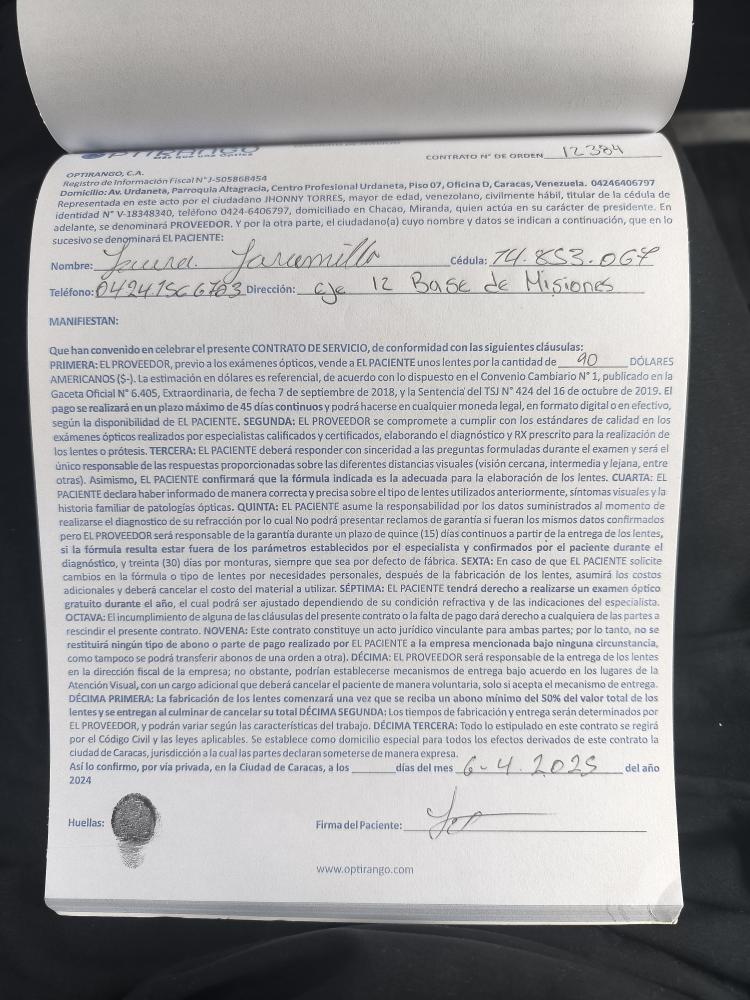 OPTIRANGO
CONTRATO N° DE ORDEN 12384
OPTIRANGO, C.A.
Registro de Información Fiscal N°J-505868454
Domicilio: Av. Urdaneta, Parroquia Altagracia, Centro Profesional Urdaneta, Piso 07, Oficina D, Caracas, Venezuela. 04246406797
Representada en este acto por el ciudadano JHONNY TORRES, mayor de edad, venezolano, civilmente hábil, titular de la cédula de
identidad N° V-18348340, teléfono 0424-6406797, domiciliado en Chacao, Miranda, quien actúa en su carácter de presidente. En
adelante, se denominará PROVEEDOR. Y por la otra parte, el ciudadano(a) cuyo nombre y datos se indican a continuación, que en lo
sucesivo se denominará EL PACIENTE:
Nombre: Laura Jaramillo Cédula: 14.853.067
Teléfono: Dirección: eje 12 Base de Misiones
MANIFIESTAN:
Que han convenido en celebrar el presente CONTRATO DE SERVICIO, de conformidad con las siguientes cláusulas:
PRIMERA: EL PROVEEDOR, previo a los exámenes ópticos, vende a EL PACIENTE unos lentes por la cantidad de 90 DÓLARES
AMERICANOS ($-). La estimación en dólares es referencial, de acuerdo con lo dispuesto en el Convenio Cambiario N° 1, publicado en la
Gaceta Oficial N° 6.405, Extraordinaria, de fecha 7 de septiembre de 2018, y la Sentencia del TSJ N° 424 del 16 de octubre de 2019. El
pago se realizará en un plazo máximo de 45 días continuos y podrá hacerse en cualquier moneda legal, en formato digital o en efectivo,
según la disponibilidad de EL PACIENTE. SEGUNDA: EL PROVEEDOR se compromete a cumplir con los estándares de calidad en los
exámenes ópticos realizados por especialistas calificados y certificados, elaborando el diagnóstico y RX prescrito para la realización de
los lentes o prótesis. TERCERA: EL PACIENTE deberá responder con sinceridad a las preguntas formuladas durante el examen y será el
único responsable de las respuestas proporcionadas sobre las diferentes distancias visuales (visión cercana, intermedia y lejana, entre
otras). Asimismo, EL PACIENTE confirmará que la fórmula indicada es la adecuada para la elaboración de los lentes. CUARTA: EL
PACIENTE declara haber informado de manera correcta y precisa sobre el tipo de lentes utilizados anteriormente, síntomas visuales y la
historia familiar de patologías ópticas. QUINTA: EL PACIENTE asume la responsabilidad por los datos suministrados al momento de
realizarse el diagnostico de su refracción por lo cual No podrá presentar reclamos de garantía si fueran los mismos datos confirmados
pero EL PROVEEDOR será responsable de la garantía durante un plazo de quince (15) días continuos a partir de la entrega de los lentes,
si la fórmula resulta estar fuera de los parámetros establecidos por el especialista y confirmados por el paciente durante el
diagnóstico, y treinta (30) días por monturas, siempre que sea por defecto de fábrica. SEXTA: En caso de que EL PACIENTE solicite
cambios en la fórmula o tipo de lentes por necesidades personales, después de la fabricación de los lentes, asumirá los costos
adicionales y deberá cancelar el costo del material a utilizar. SÉPTIMA: EL PACIENTE tendrá derecho a realizarse un examen óptico
gratuito durante el año, el cual podrá ser ajustado dependiendo de su condición refractiva y de las indicaciones del especialista.
OCTAVA: El incumplimiento de alguna de las cláusulas del presente contrato o la falta de pago dará derecho a cualquiera de las partes a
rescindir el presente contrato. NOVENA: Este contrato constituye un acto jurídico vinculante para ambas partes; por lo tanto, no se
restituirá ningún tipo de abono o parte de pago realizado por EL PACIENTE a la empresa mencionada bajo ninguna circunstancia,
como tampoco se podrá transferir abonos de una orden a otra). DÉCIMA: EL PROVEEDOR será responsable de la entrega de los lentes
en la dirección fiscal de la empresa; no obstante, podrían establecerse mecanismos de entrega bajo acuerdo en los lugares de la
Atención Visual, con un cargo adicional que deberá cancelar el paciente de manera voluntaria, solo si acepta el mecanismo de entrega.
DÉCIMA PRIMERA: La fabricación de los lentes comenzará una vez que se reciba un abono mínimo del 50% del valor total de los
lentes y se entregan al culminar de cancelar su total DÉCIMA SEGUNDA: Los tiempos de fabricación y entrega serán determinados por
EL PROVEEDOR, y podrán variar según las características del trabajo. DÉCIMA TERCERA: Todo lo estipulado en este contrato se regirá
por el Código Civil y las leyes aplicables. Se establece como domicilio especial para todos los efectos derivados de este contrato la
ciudad de Caracas, jurisdicción a la cual las partes declaran someterse de manera expresa.
Así lo confirmo, por vía privada, en la Ciudad de Caracas, a los días del mes 6-4.2025 del año
2024
Huellas:
Firma del Paciente:
www.optirango.com